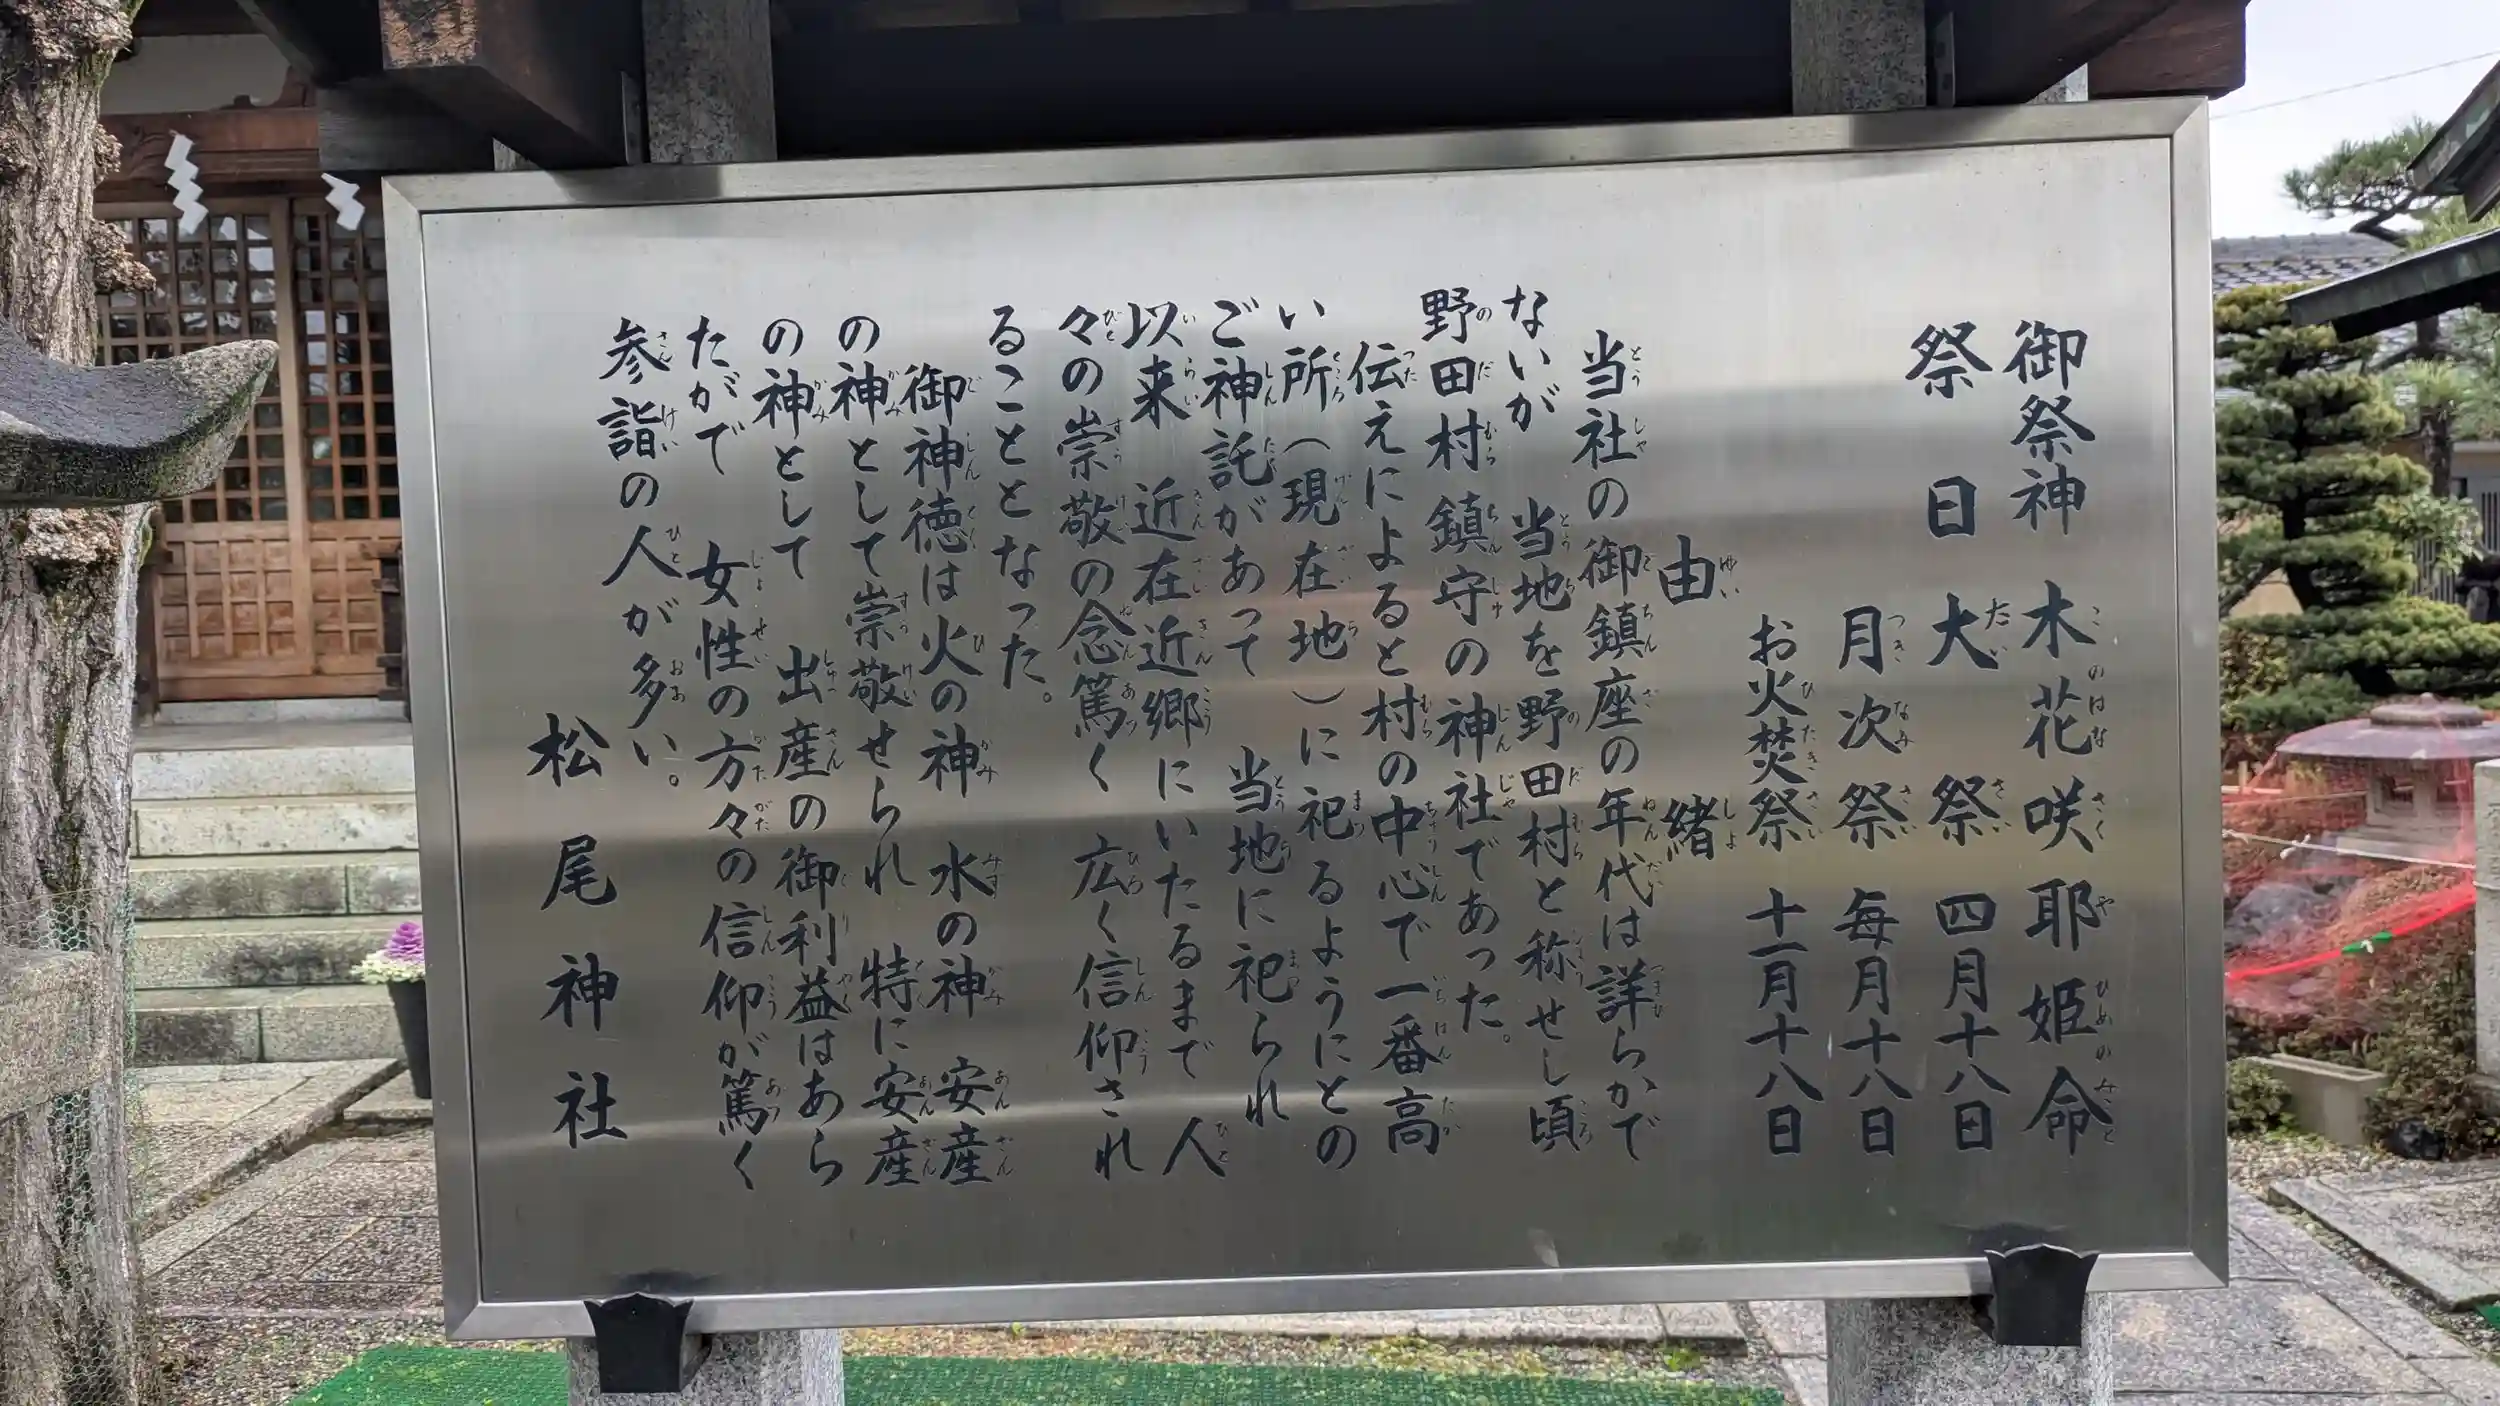 御祭神 木花咲耶姫命
祭日 大祭 四月十八日
月次祭 毎月十八日
お火焚祭 十一月十八日
由緒
当社の御鎮座の年代は詳らかで
ないが 当地を野田村と称せし頃
野田村鎮守の神社であった。
伝えによると村の中心で一番高
い所(現在地)に祀るようにとの
ご神託があって 当地に祀られ
以来 近在近郷にいたるまで人
々の崇敬の念篤く 広く信仰され
ることとなった。
御神徳は火の神 水の神 安産
の神として崇敬せられ 特に安産
の神として 出産の御利益はあら
たかで 女性の方々の信仰が篤く
参詣の人が多い。
松尾神社